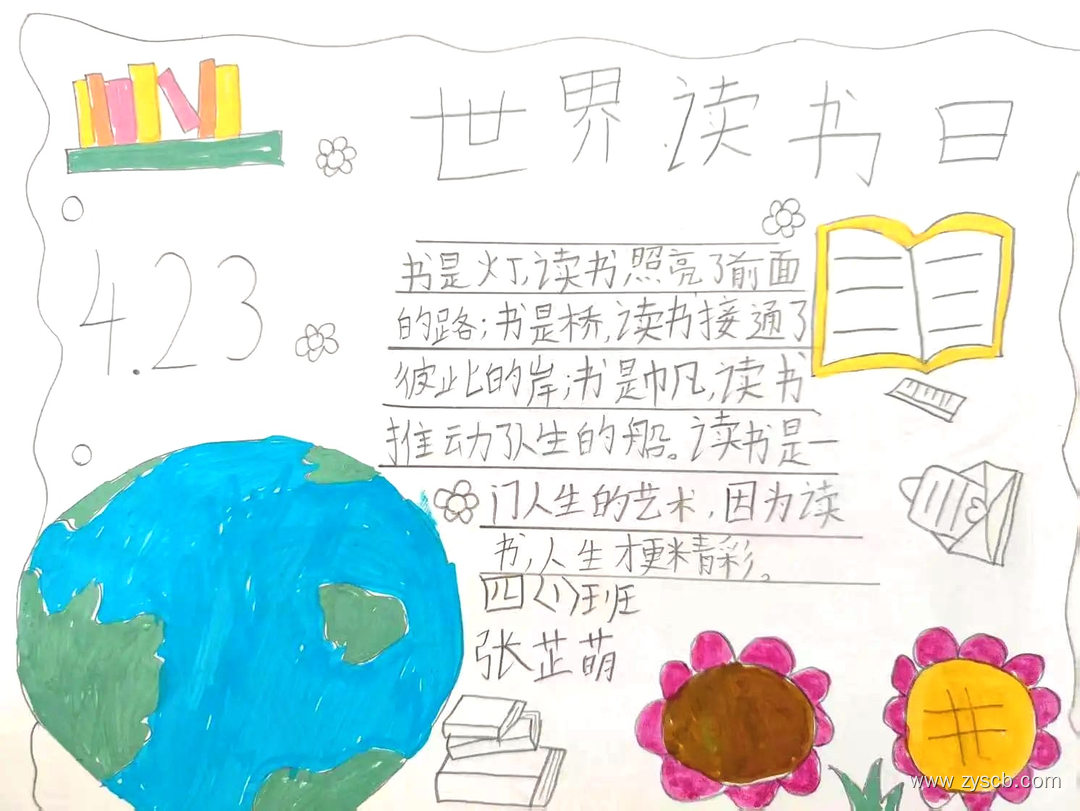 世界读书日
4.23
书是灯,读书照亮了前面
的路;书是桥,读书接通了
彼此的岸;书是帆,读书
推动了人生的船。读书是一
门人生的艺术,因为读
书,人生才更精彩。
四(1)班
张芷萌
www.zyscb.com